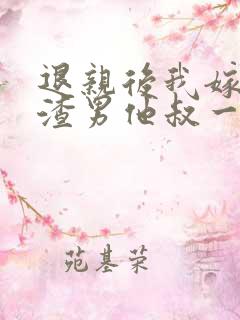 退親後我嫁
渣男他叔一
苑基荣